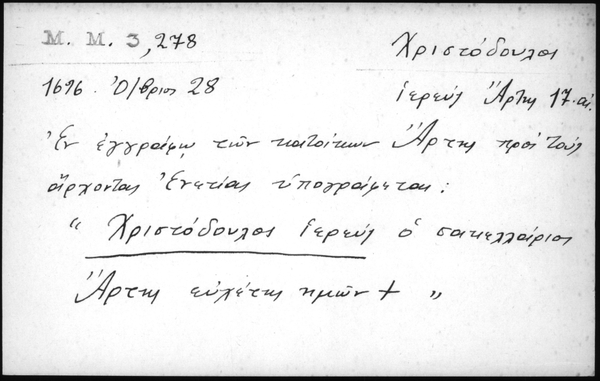 Μ. Μ. 3, 278
Χριστόδουλος
1696. Ὀ/βριος 28
ἱερεὺς Ἄρτης 17. αἰ.
Ἐν ἐγγράφῳ τῶν κατοίκων Ἄρτης πρὸς τοὺς
ἄρχοντας Ἐνετίας ὑπογράφεται:
" Χριστόδουλος ἱερεὺς ὁ σακελλάριος
Ἄρτης εὐχέτης ημῶν + "